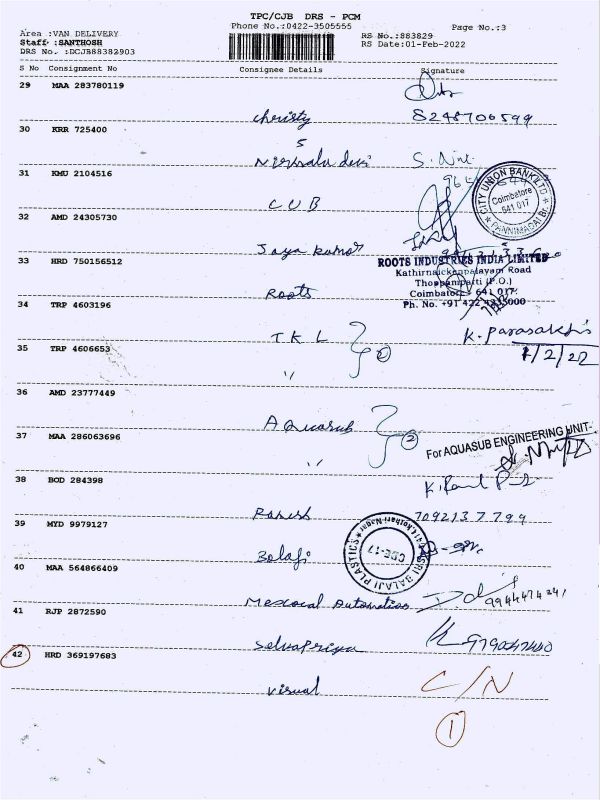 TPC/CJB DRS - PCM
Phone No.:0422-3505555
Page No.:3
Area :VAN DELIVERY
Staff :SANTHOSH
DRS No. :DCJB88382903
RS No.:883829
RS Date:01-Feb-2022
S No Consignment No Consignee Details Signature
29 MAA 283780119
Christy 8248706599
30 KRR 725400
5
Nirmala devi S. Nir
31 KMU 2104516
CUB
CITY UNION BANK LTD
Coimbatore
641 017
32 AMD 24305730
Jaya kumar
33 HRD 750156512
Roots
ROOTS INDUSTRIES INDIA LIMITED
Kathirnaickenpalayam Road
Thoppampatti (P.O.)
Coimbatore - 641 017.
Ph. No. +91 422
34 TRP 4603196
TKL 2
K. Parasakthi
1/2/22
35 TRP 4606653
"
36 AMD 23777449
Aquasub 2
37 MAA 286063696
"
For AQUASUB ENGINEERING UNIT-
38 BOD 284398
39 MYD 9979127
7092137799
Balaji
SRI BALAJI PLASTICS
CBE-17
40 MAA 564866409
Automation
41 RJP 2872590
Selvapriya
42 HRD 369197683
Visual C/N
1